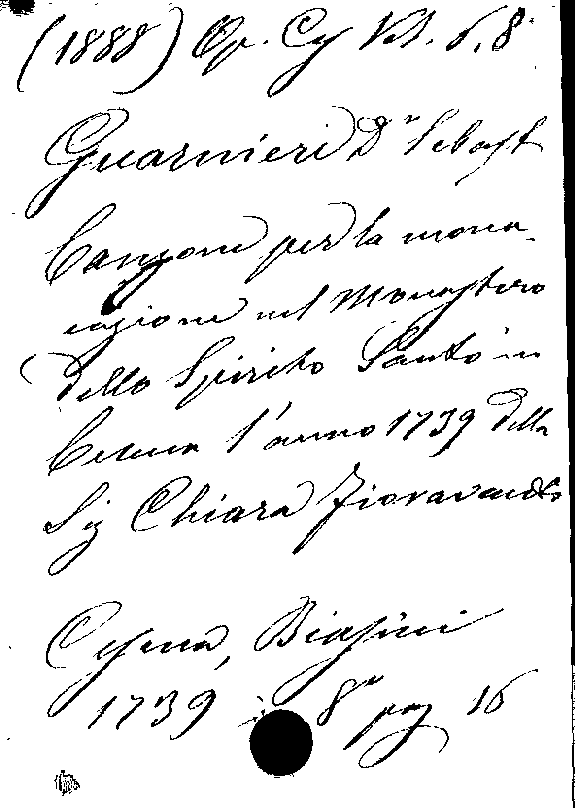 (1888) Op. Ces Vol. 6. 8°
Guarnieri Dr Sebast
Canzone per la mona-
cazione nel Monastero
dello Spirito Santo in
Cesena l'anno 1739 della
Sig Chiara Fioravanti
Cesena, Biasini
1739 in 8° pag 16